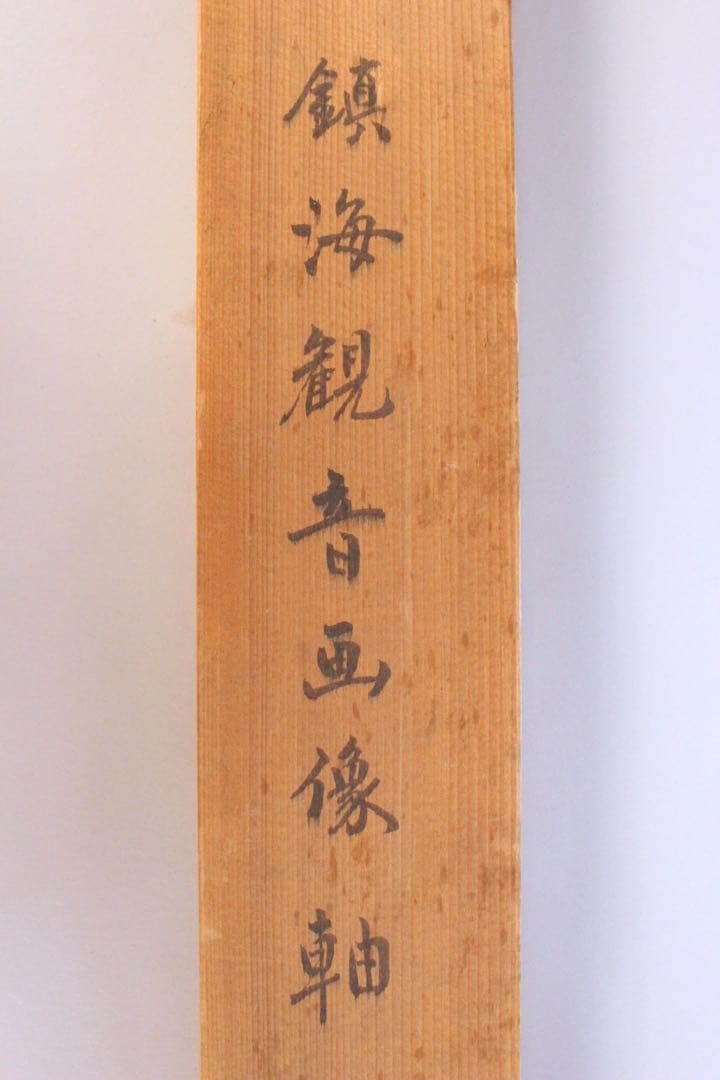 鎮海観音画像軸